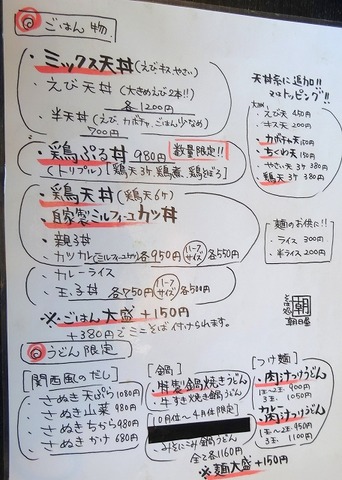 ごはん物
・ミックス天丼(えびキスやさい)
・えび天丼(大きめえび2本!!)
各1200円
・半天丼(えび、カボチャ、ごはん少なめ)
700円
・鶏ぷる丼 980円 数量限定!!
(トリプル)[鶏天3ケ 鶏煮、鶏そぼろ]
・鶏天丼(鶏天6ケ)
・自家製ミルフィーユカツ丼
・親子丼
・カツカレー(ミルフィーユカツ)各950円 ハーフサイズ 各550円
・カレーライス
・玉子丼 各750円 ハーフサイズ 各550円
※ごはん大盛 +150円
+380円でミニそば付けられます。
天丼系に追加!!
マストッピング!!
・えび天 450円
・キス天 200円
・カボチャ天 150円
・ちくわ天 150円
・やさい天 3ケ 380円
・鶏天 3ケ 380円
麺のお供に!!
・ライス 300円
・半ライス 200円
朝日屋
うどん限定
[関西風のだし]
・さぬき天ぷら 1080円
・さぬき山菜 980円
・さぬきちから 980円
・さぬきかけ 680円
[鍋]
・特製鍋焼きうどん
・牛すき焼き鍋うどん
[10月位〜4月位限定]
・みそにこみ鍋うどん
全て各1160円
[つけ麺]
・肉汁つけうどん
1玉〜2玉 900円
3玉 1050円
・カレー肉汁つけうどん
1玉〜2玉 950円
3玉 1100円
※麺大盛 +150円